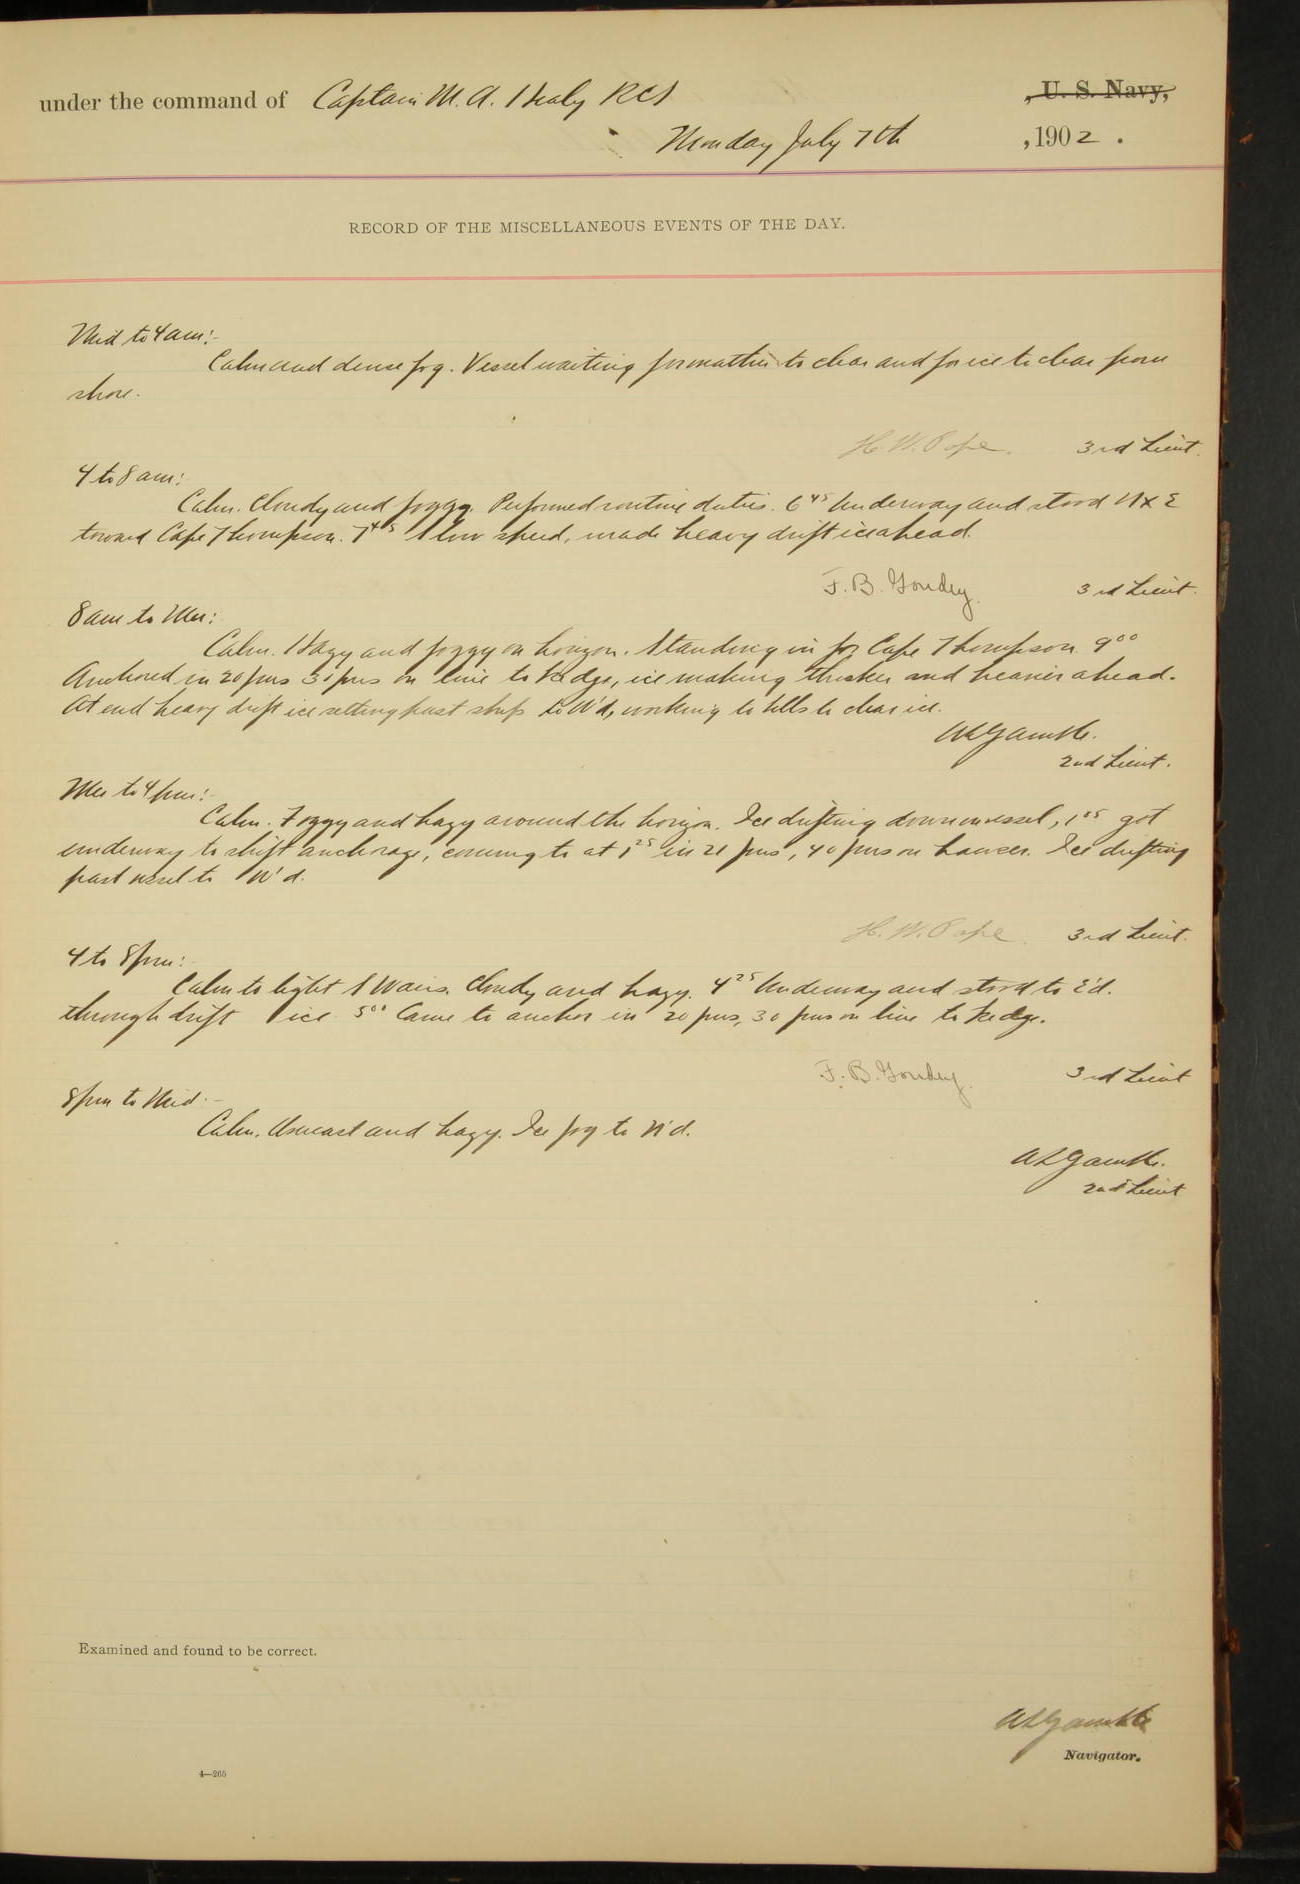 under the command of Captain M. A. Healy RCS , U. S. Navy,
Monday July 7th , 1902 .
RECORD OF THE MISCELLANEOUS EVENTS OF THE DAY.
Mid to 4 am:-
Calm and dense fog. Vessel waiting for weather to clear and for ice to clear from
shore.
H. W. Pope. 3rd Lieut.
4 to 8 am:
Calm. Cloudy and foggy. Performed routine duties. 6 45 Underway and stood N x E
toward Cape Thompson. 7 45 Slow speed, made heavy drift ice ahead.
F. B. Goudey. 3rd Lieut.
8 am to Mer:
Calm. Hazy and foggy on horizon. Standing in for Cape Thompson. 9 00
Anchored in 20 fms 30 fms on line to Kedge, ice making thicker and heavier ahead.
At end heavy drift ice setting past ship to W'd, working to clear ice.
A L Gamble.
2nd Lieut.
Mer to 4 pm:-
Calm. Foggy and hazy around the horizon. Ice drifting down on vessel, 1 05 got
underway to shift anchorage, coming to at 1 25 in 21 fms, 40 fms on hawser. Ice drifting
past vessel to W'd.
H. W. Pope 3rd Lieut.
4 to 8 pm:-
Calm to light S W airs. Cloudy and hazy. 4 25 Underway and stood to E'd.
through drift ice. 5 00 Came to anchor in 20 fms, 30 fms on line to Kedge.
F. B. Goudey. 3rd Lieut
8 pm to Mid.-
Calm. Overcast and hazy. Ice fog to N'd.
A L Gamble.
2nd Lieut
Examined and found to be correct.
A L Gamble
Navigator.
4—265